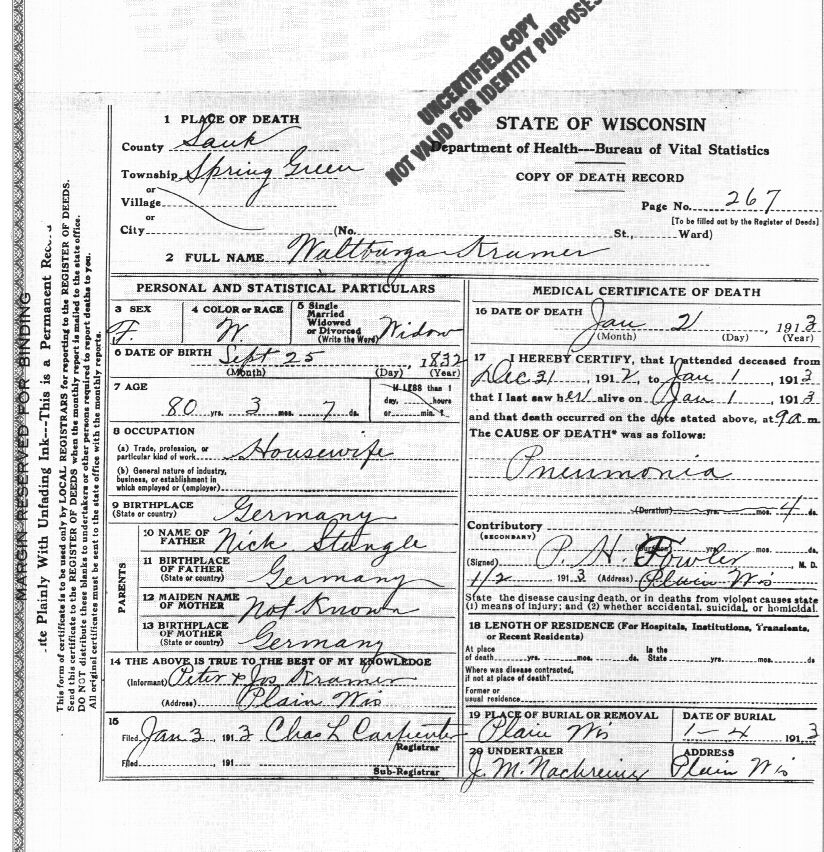 UNCERTIFIED COPY
NOT VALID FOR IDENTITY PURPOSES
MARGIN RESERVED FOR BINDING
ite Plainly With Unfading Ink---This is a Permanent Rec
This form of certificate is to be used only by LOCAL REGISTRARS for reporting to the REGISTER OF DEEDS.
Send this certificate to the REGISTER OF DEEDS when the monthly report is mailed to the state office.
DO NOT distribute these blanks to undertakers or other persons required to report deaths to you.
All original certificates must be sent to the state office with the monthly reports.
1 PLACE OF DEATH
County Sauk
Township Spring Green
or
Village
or
City (No. St., Ward)
STATE OF WISCONSIN
Department of Health---Bureau of Vital Statistics
COPY OF DEATH RECORD
Page No. 267
[To be filled out by the Register of Deeds]
2 FULL NAME Waltburga Kramer
PERSONAL AND STATISTICAL PARTICULARS
3 SEX
F.
4 COLOR or RACE
W.
5 Single
Married
Widowed
or Divorced
(Write the Word) Widow
6 DATE OF BIRTH Sept 25, 1832
(Month) (Day) (Year)
7 AGE
80 yrs. 3 mos. 7 ds.
If LESS than 1
day, hours
or min.
8 OCCUPATION
(a) Trade, profession, or
particular kind of work Housewife
(b) General nature of industry,
business, or establishment in
which employed or (employer)
9 BIRTHPLACE
(State or country) Germany
PARENTS
10 NAME OF
FATHER Nick Stangle
11 BIRTHPLACE
OF FATHER
(State or country) Germany
12 MAIDEN NAME
OF MOTHER Not Known
13 BIRTHPLACE
OF MOTHER
(State or country) Germany
14 THE ABOVE IS TRUE TO THE BEST OF MY KNOWLEDGE
(Informant) Peter & Jos Kramer
(Address) Plain Wis
15
Filed Jan 3, 1913 Chas L Carpenter
Registrar
Filed , 191
Sub-Registrar
MEDICAL CERTIFICATE OF DEATH
16 DATE OF DEATH
Jan 2, 1913
(Month) (Day) (Year)
17 I HEREBY CERTIFY, that I attended deceased from
Dec 31, 1912, to Jan 1, 1913
that I last saw her alive on Jan 1, 1913
and that death occurred on the date stated above, at 9 a.m.
The CAUSE OF DEATH* was as follows:
Pneumonia
(Duration) yrs. mos. 4 ds.
Contributory
(SECONDARY)
(Duration) yrs. mos. ds.
(Signed) P. H. Fowler M. D.
1/2 1913 (Address) Plain Wis
State the disease causing death, or in deaths from violent causes state
(1) means of injury; and (2) whether accidental, suicidal, or homicidal.
18 LENGTH OF RESIDENCE (For Hospitals, Institutions, Transients,
or Recent Residents)
At place
of death yrs. mos. ds.
In the
State yrs. mos. ds
Where was disease contracted,
if not at place of death?
Former or
usual residence
19 PLACE OF BURIAL OR REMOVAL
Plain Wis
DATE OF BURIAL
1-4 1913
20 UNDERTAKER
J. M. Nachreiner
ADDRESS
Plain Wis